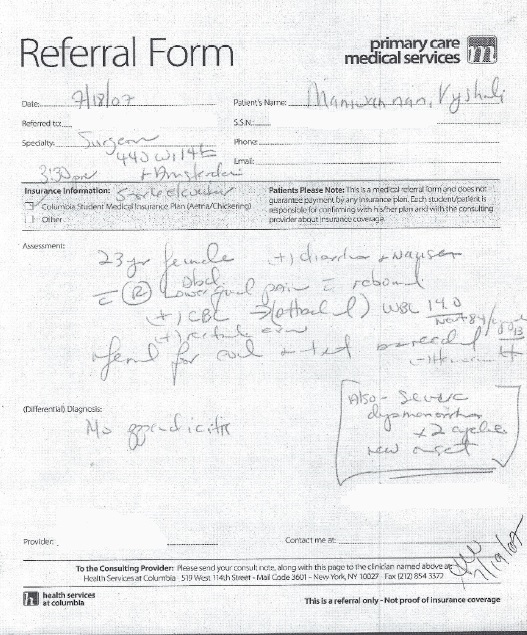 Referral Form
primary care
medical services
Date: 7/18/07
Patient's Name: Vyshali
Referred to:
S.S.N.:
Specialty: Surgeon
Phone:
440 W 114th
Email:
3:30 pm + Amsterdam
Insurance Information:
Columbia Student Medical Insurance Plan (Aetna/Chickering)
Other
Patients Please Note: This is a medical referral form and does not
guarantee payment by any insurance plan. Each student/patient is
responsible for confirming with his/her plan and with the consulting
provider about insurance coverage.
Assessment:
23 yr female (+) diarrhea + nausea
Abd
R Lower quad pain c rebound
(+) CBC → (attached) WBC 14.0
(+) rectal exam
referral for eval
(Differential) Diagnosis:
Also - severe
dysmenorrhea
x2 cycles
new onset
Provider:
Contact me at:
To the Consulting Provider: Please send your consult note, along with this page to the clinician named above at:
Health Services at Columbia 519 West 114th Street - Mail Code 3601 - New York, NY 10027 Fax (212) 854 3372
7/19/07
health services
at columbia
This is a referral only - Not proof of insurance coverage